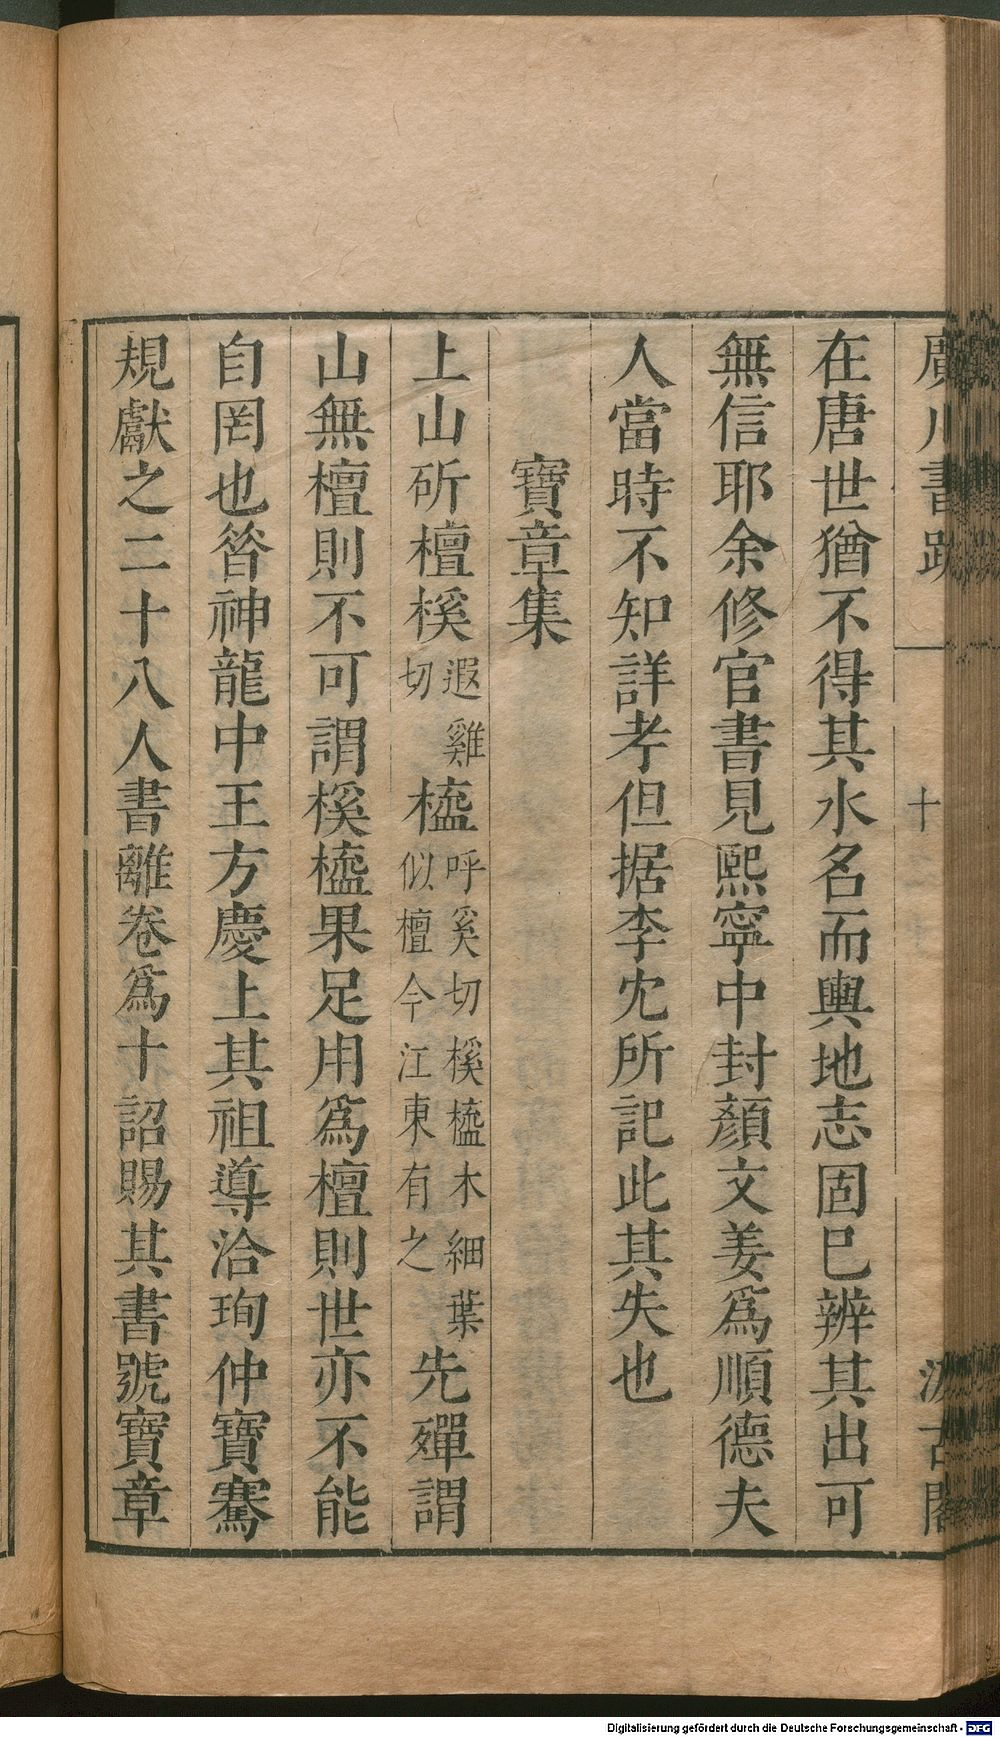 廣川書跋
十
汲古閣
在唐世猶不得其水名而輿地志固巳辨其出可
無信耶余修官書見熙寧中封顏文姜爲順德夫
人當時不知詳考但据李冘所記此其失也
寶章集
上山斫檀榽遐雞切橀呼奚切榽橀木細葉似檀今江東有之先殫謂
山無檀則不可謂榽橀果足用爲檀則世亦不能
自罔也昝神龍中王方慶上其祖導洽珣仲寶騫
規獻之二十八人書離卷爲十詔賜其書號寶章
Digitalisierung gefördert durch die Deutsche Forschungsgemeinschaft - DFG